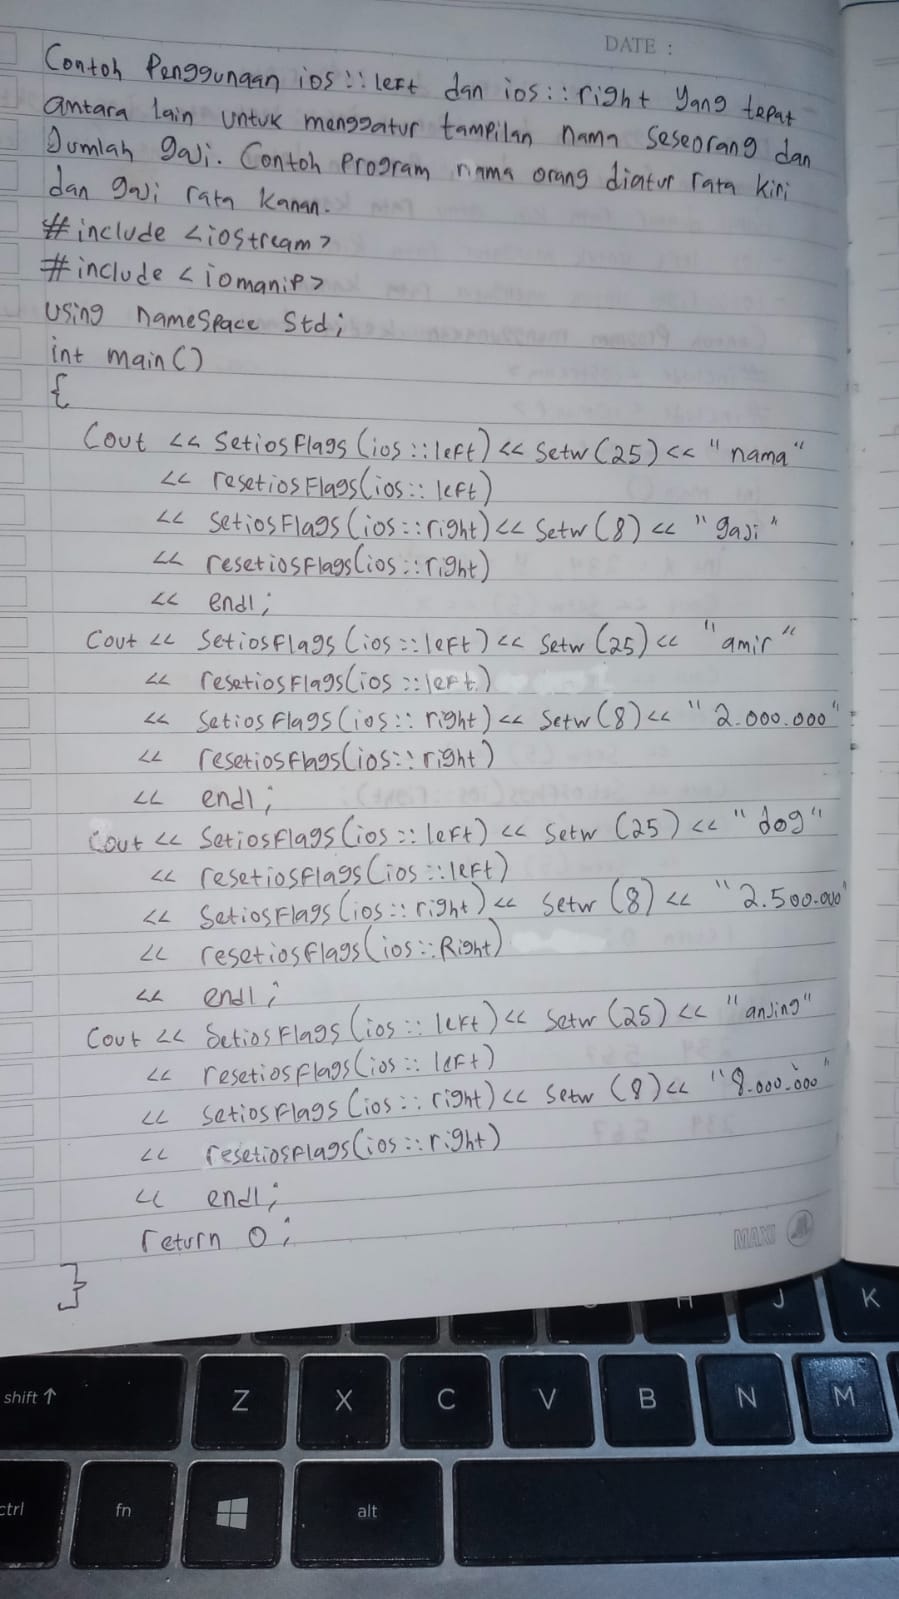 DATE :
Contoh Penggunaan ios::left dan ios::right yang tepat
antara lain untuk menggatur tampilan nama seseorang dan
Jumlah gaji. Contoh Program nama orang diatur rata kiri
dan gaji rata kanan.
#include <iostream>
#include <iomanip>
using namespace Std;
int main()
{
Cout << SetiosFlags(ios::left) << Setw(25) << "nama"
<< resetiosFlags(ios::left)
<< setiosFlags(ios::right) << Setw(8) << "gaji"
<< resetiosFlags(ios::right)
<< endl;
Cout << SetiosFlags(ios::left) << Setw(25) << "amir"
<< resetiosFlags(ios::left)
<< SetiosFlags(ios::right) << Setw(8) << "2.000.000"
<< resetiosFlags(ios::right)
<< endl;
Cout << SetiosFlags(ios::left) << Setw(25) << "dog"
<< resetiosFlags(ios::left)
<< SetiosFlags(ios::right) << Setw(8) << "2.500.000"
<< resetiosflags(ios::Right)
<< endl;
Cout << SetiosFlags(ios::left) << Setw(25) << "anjing"
<< resetiosflags(ios::left)
<< SetiosFlags(ios::right) << Setw(8) << "8.000.000"
<< resetiosFlags(ios::right)
<< endl;
return 0;
}
MAXI
H J K
shift ↑ Z X C V B N M
ctrl fn alt